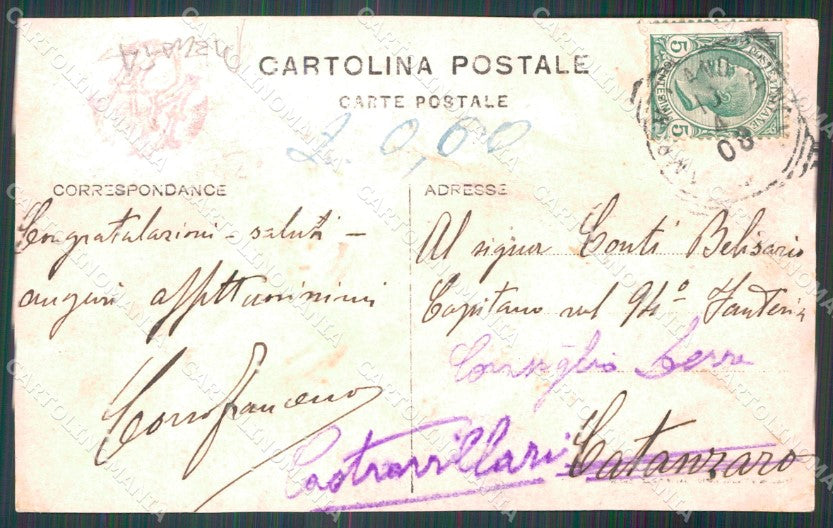 CARTOLINA POSTALE
CARTE POSTALE
£. 0,60
CORRESPONDANCE
Congratulazioni - saluti -
auguri affettuosissimi
ADRESSE
Al signor Conti Belisario
Capitano nel 94° Fanteria
Consiglio Leva
Castrovillari
Catanzaro
5
5
08
CARTOLINOMANIA